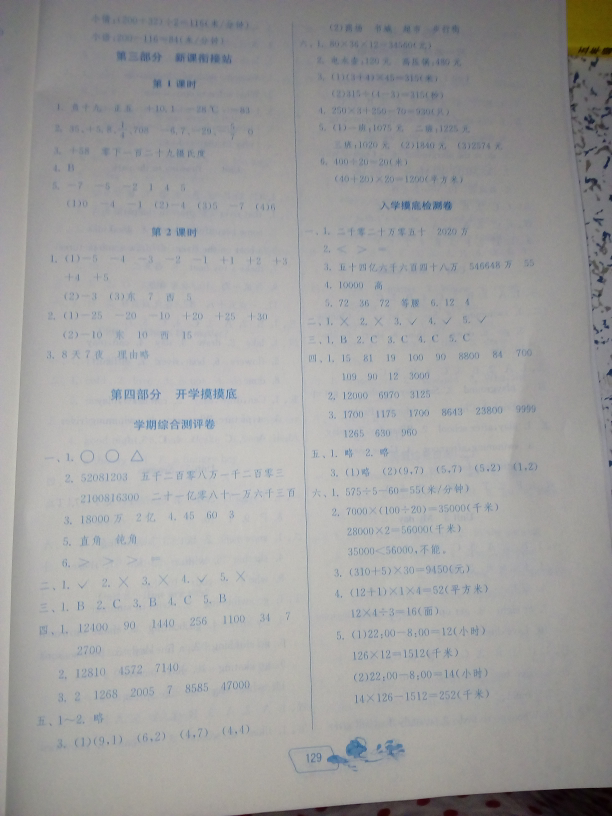 小强:(200+32)÷2=116(米/分钟)
第三部分 新课衔接站
第1课时
1. 负十八 正五 +10.1 -28℃ -61
3. +38 零下一百二十九摄氏度
4. B
5. -7 -5 -2 1 4 5
(1)0 -4 -1 (2)-4 (3)5 -7 (4)6
第2课时
1. (1)-5 -4 -3 -2 -1 +1 +2 +3
+4 +5
(2)-3 (3)东 7 西 5
2. (1)-25 -20 -10 +20 +25 +30
(2)-10 东 10 西 15
3. 8天7夜 理由略
第四部分 开学摸摸底
学期综合测评卷
一、1. ○ ○ △
2. 52081203 五千二百零八万一千二百零三
2100816300 二十一亿零八十一万六千三百
3. 18000万 2亿 4. 45 60 3
5. 直角 钝角
6. > > > =
二、1. ✓ 2. × 3. × 4. ✓ 5. ×
三、1. B 2. C 3. B 4. C 5. B
四、1. 12400 90 1440 256 1100 34 7
2700
2. 12810 4572 7140
3. 2 1268 2005 7 8585 47000
五、1~2. 略
3. (1)(9,1) (6,2) (4,7) (4,4)
(2)商场 书城 超市 步行街
六、1. 80×36×12=34560(元)
3. (1)(3+4)×45=315(米)
(2)315÷(4-3)=315(秒)
4. 250×3+250-70=930(只)
5. (1)一班:1075元 二班:1225元
三班:1020元 (2)1840元 (3)2374元
6. 400÷20=20(米)
(40+20)×20=1200(平方米)
入学摸底检测卷
一、1. 二千零二十万零五十 2020万
2. < > =
3. 五十四亿六千六百四十八万 546648万 55
4. 10000 高
5. 72 36 72 等腰 6. 12 4
二、1. × 2. × 3. ✓ 4. ✓ 5. ✓
三、1. B 2. C 3. C 4. C 5. C
四、1. 15 81 19 100 90 8800 84 700
109 90 12 3000
2. 12000 6970 3125
3. 1700 1175 1700 8643 23800 9999
1265 630 960
五、1. 略 2. 略
3. (1)略 (2)(9,7) (5,7) (5,2) (1,2)
六、1. 575÷5-60=55(米/分钟)
2. 7000×(100÷20)=35000(千米)
28000×2=56000(千米)
35000<56000,不能。
3. (310+5)×30=9450(元)
4. (12+1)×1×4=52(平方米)
12×4÷3=16(面)
5. (1)22:00-8:00=12(小时)
126×12=1512(千米)
(2)22:00-8:00=14(小时)
14×126-1512=252(千米)
129